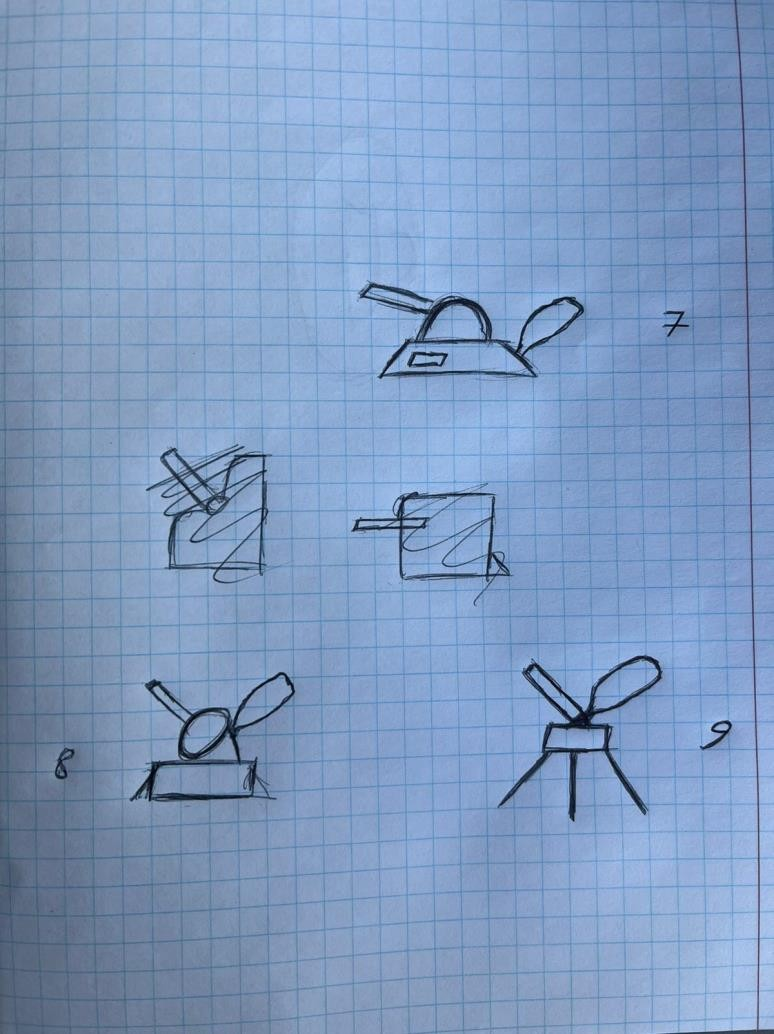 7
8
9